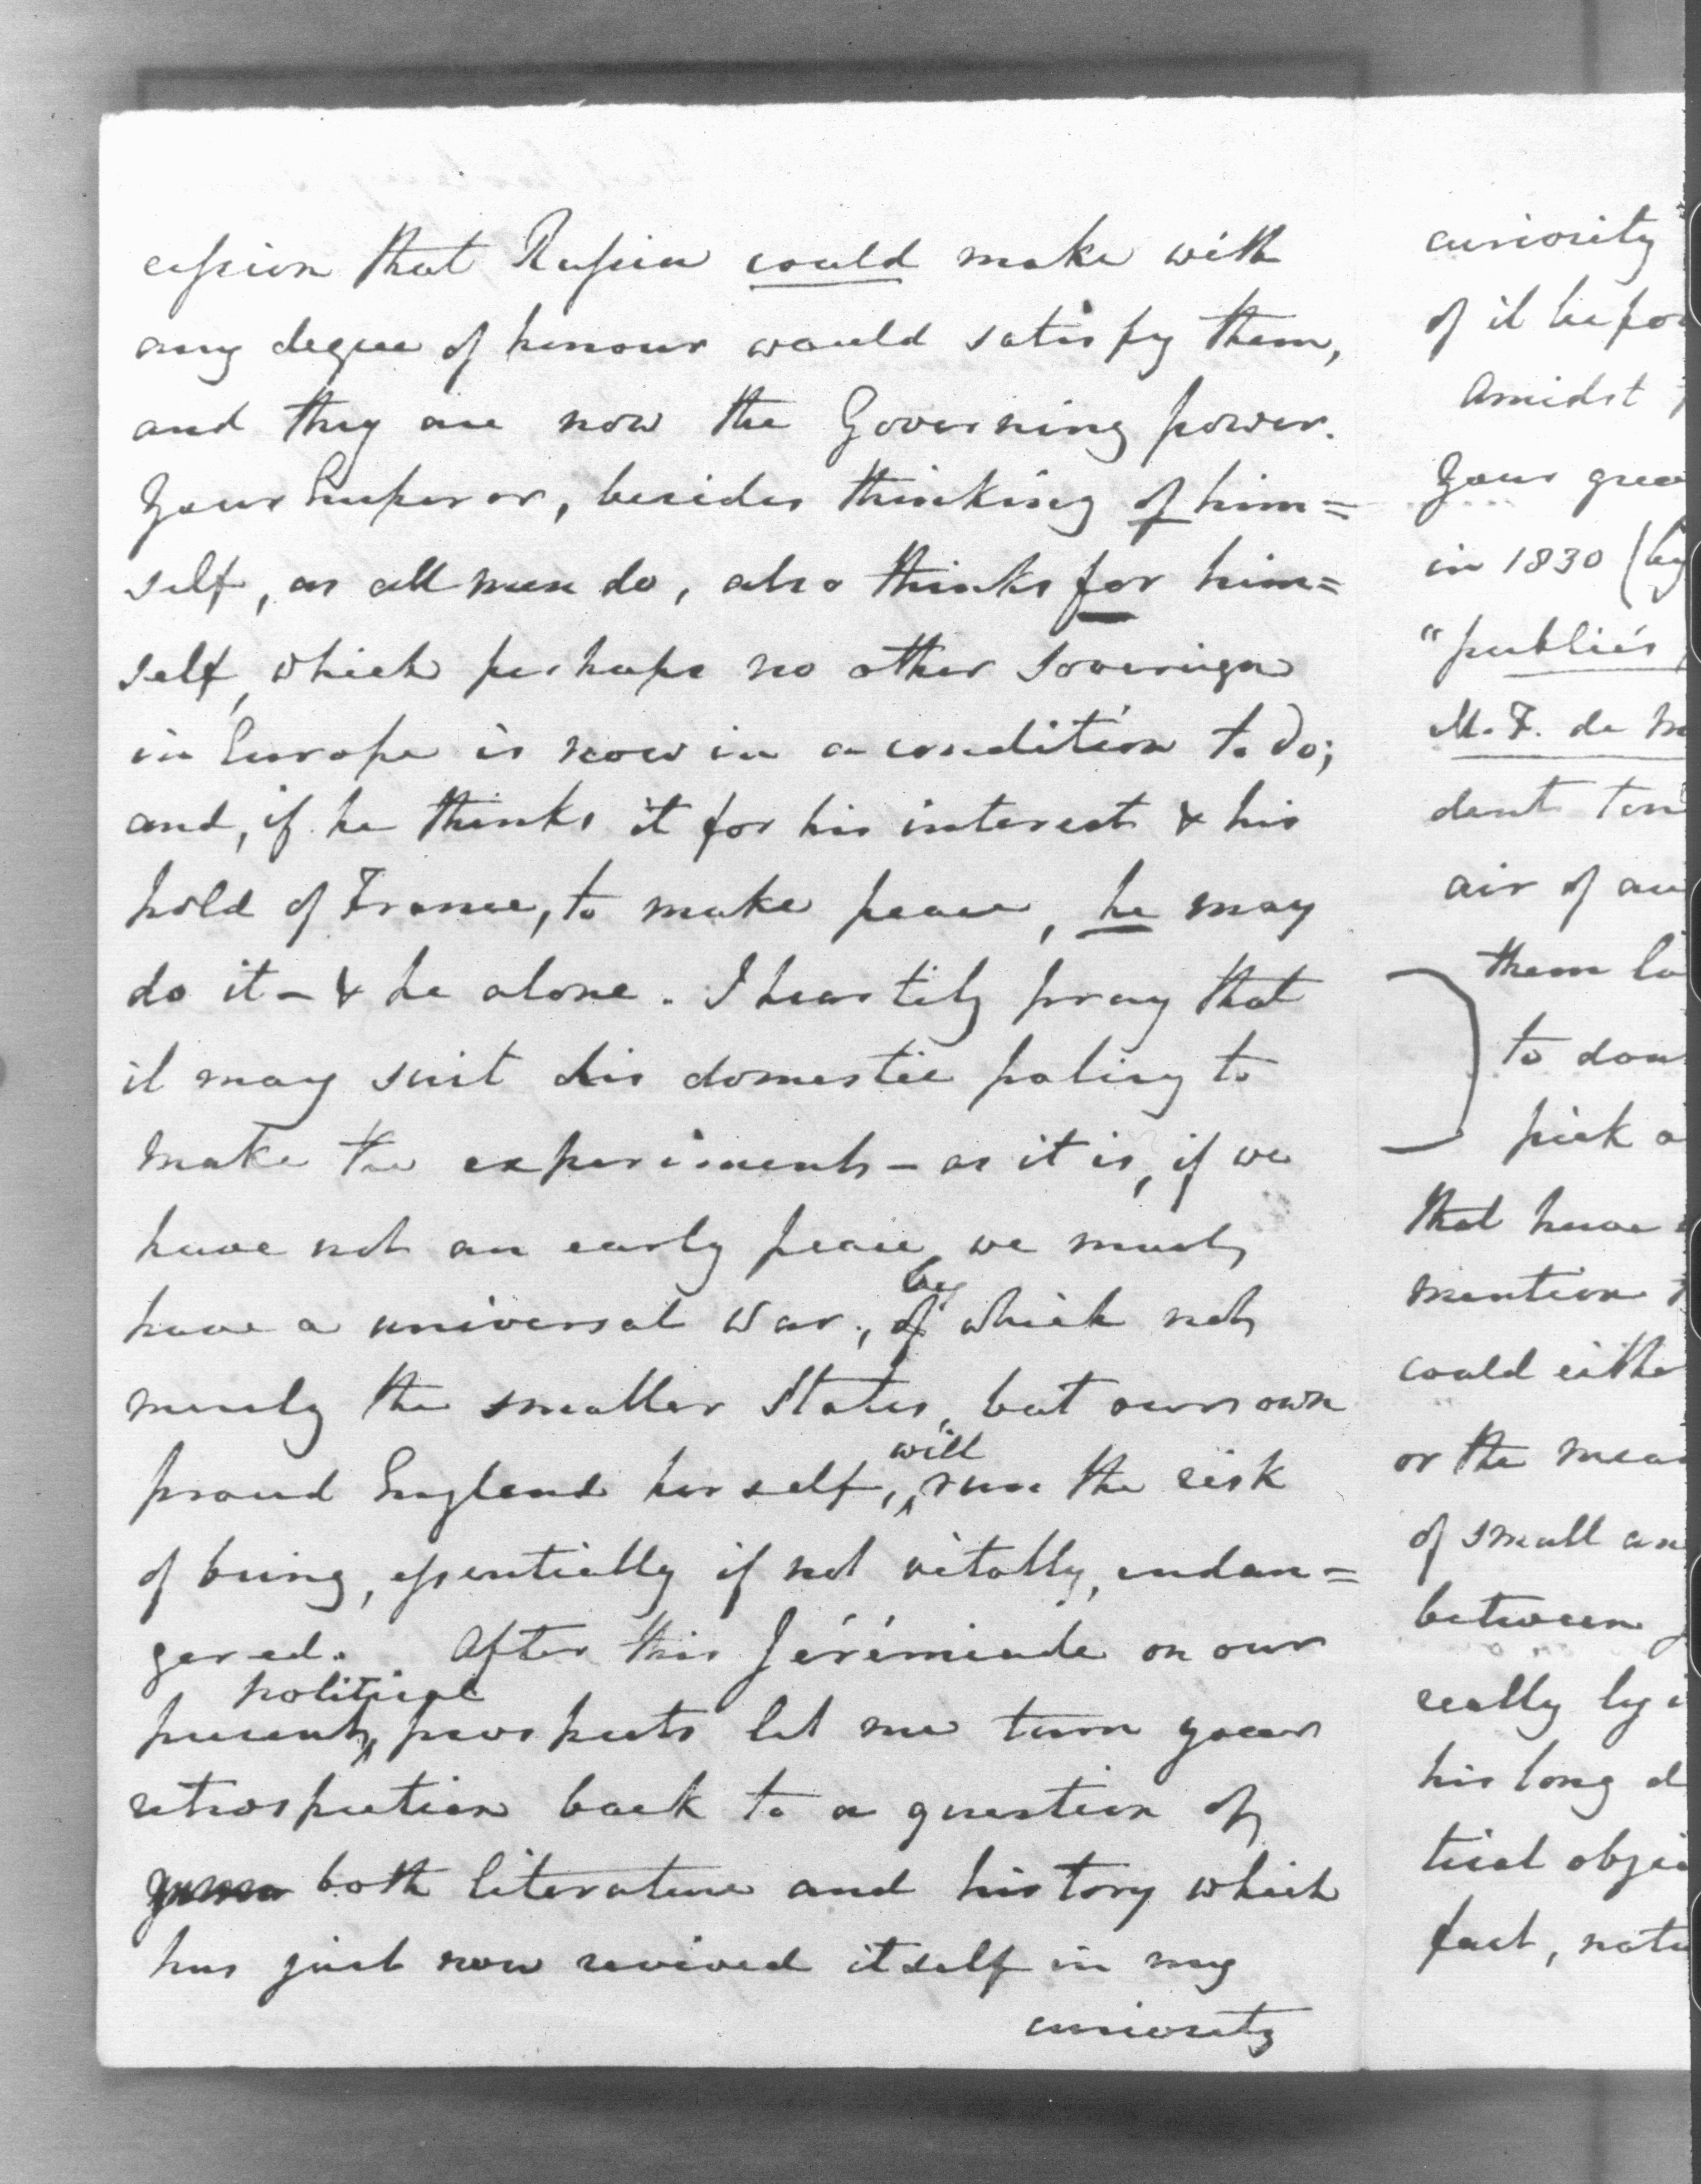 cession that Russia could make with
any degree of honour would satisfy them,
and they are now the Governing power.
Your Emperor, besides thinking of him=
self, as all men do, also thinks for him=
self, which perhaps no other Sovereign
in Europe is now in a condition to do;
and, if he thinks it for his interest & his
hold of France, to make peace, he may
do it - & he alone. I heartily pray that
it may suit his domestic policy to
make the experiment - as it is, if we
have not an early peace, we must
have a universal war, by which not
merely the smaller States, but our own
proud England herself, will run the risk
of being, essentially if not vitally, endan=
gered. After this Jérémiade on our
present political prospects let me turn your
retrospection back to a question of
both literature and history which
has just now revived itself in my
curiosity
curiosity
of it befo
Amidst
your grea
in 1830 (by
"publiés
M. F. de
dent
air of au
them
to dou
pick a
that have
mention
could eithe
or the mea
of small an
between
really
his long d
tical obje
fact, not